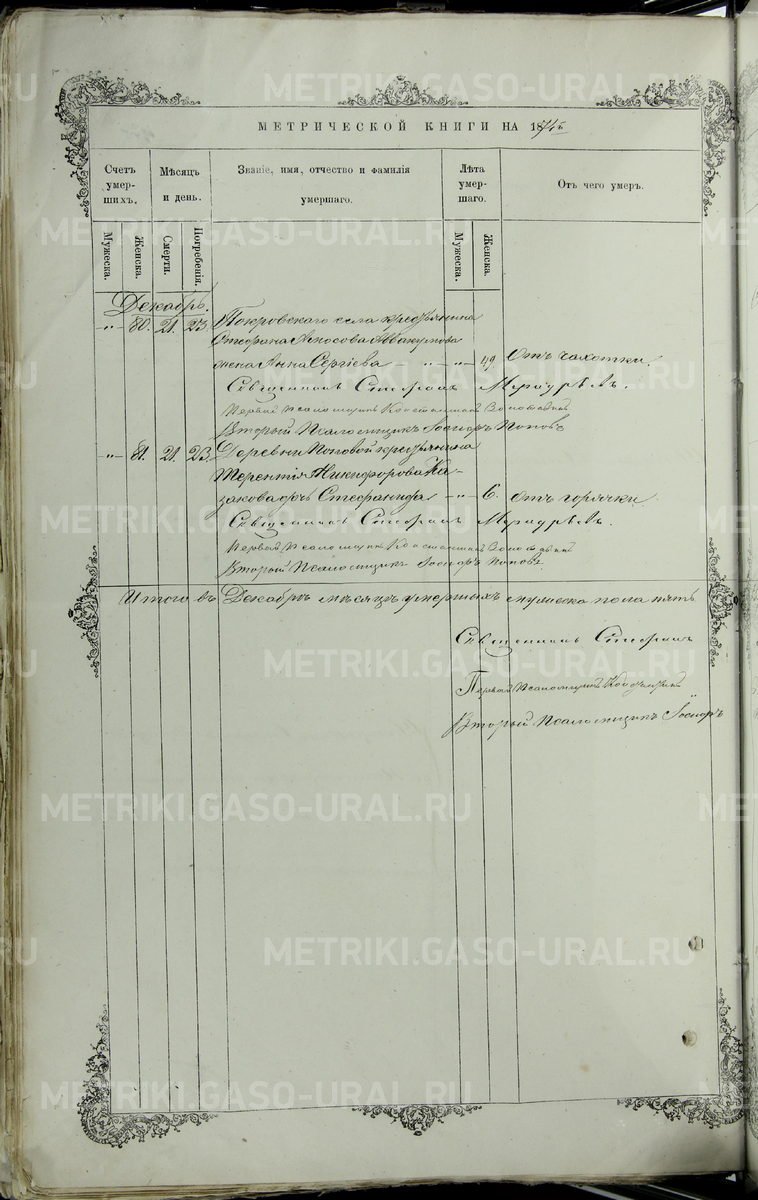 METRIKI.GASO-URAL.RU
МЕТРИЧЕСКОЙ КНИГИ НА 18
Счетъ умер-шихъ.
Мѣсяцъ и день.
Званіе, имя, отчество и фамилія умершаго.
Лѣта умер-шаго.
Отъ чего умеръ.
Мужеска.
Женска.
Смерти.
Погребенія.
Мужеска.
Женска.
Декабрь.
„— 80. 21. 23. Покровскаго села крестьянина
Стефана Аввакумова
жена Анна Сергіева — „ — „ — 49 отъ чахотки.
Священникъ Стефанъ
Первый Псаломщикъ Константинъ
Вторый Псаломщикъ Іосифъ Поповъ
„— 81. 21. 23. Деревни Поповой крестьянина
Терентія Никифорова Ка-
закова дочь Стефанида — „ — 6. отъ горячки
Священникъ Стефанъ
Первый Псаломщикъ Константинъ
Вторый Псаломщикъ Іосифъ Поповъ.
Итого въ Декабрѣ мѣсяцѣ умершихъ мужеска пола пять
Священникъ Стефанъ
Первый Псаломщикъ Константинъ
Вторый Псаломщикъ Іосифъ